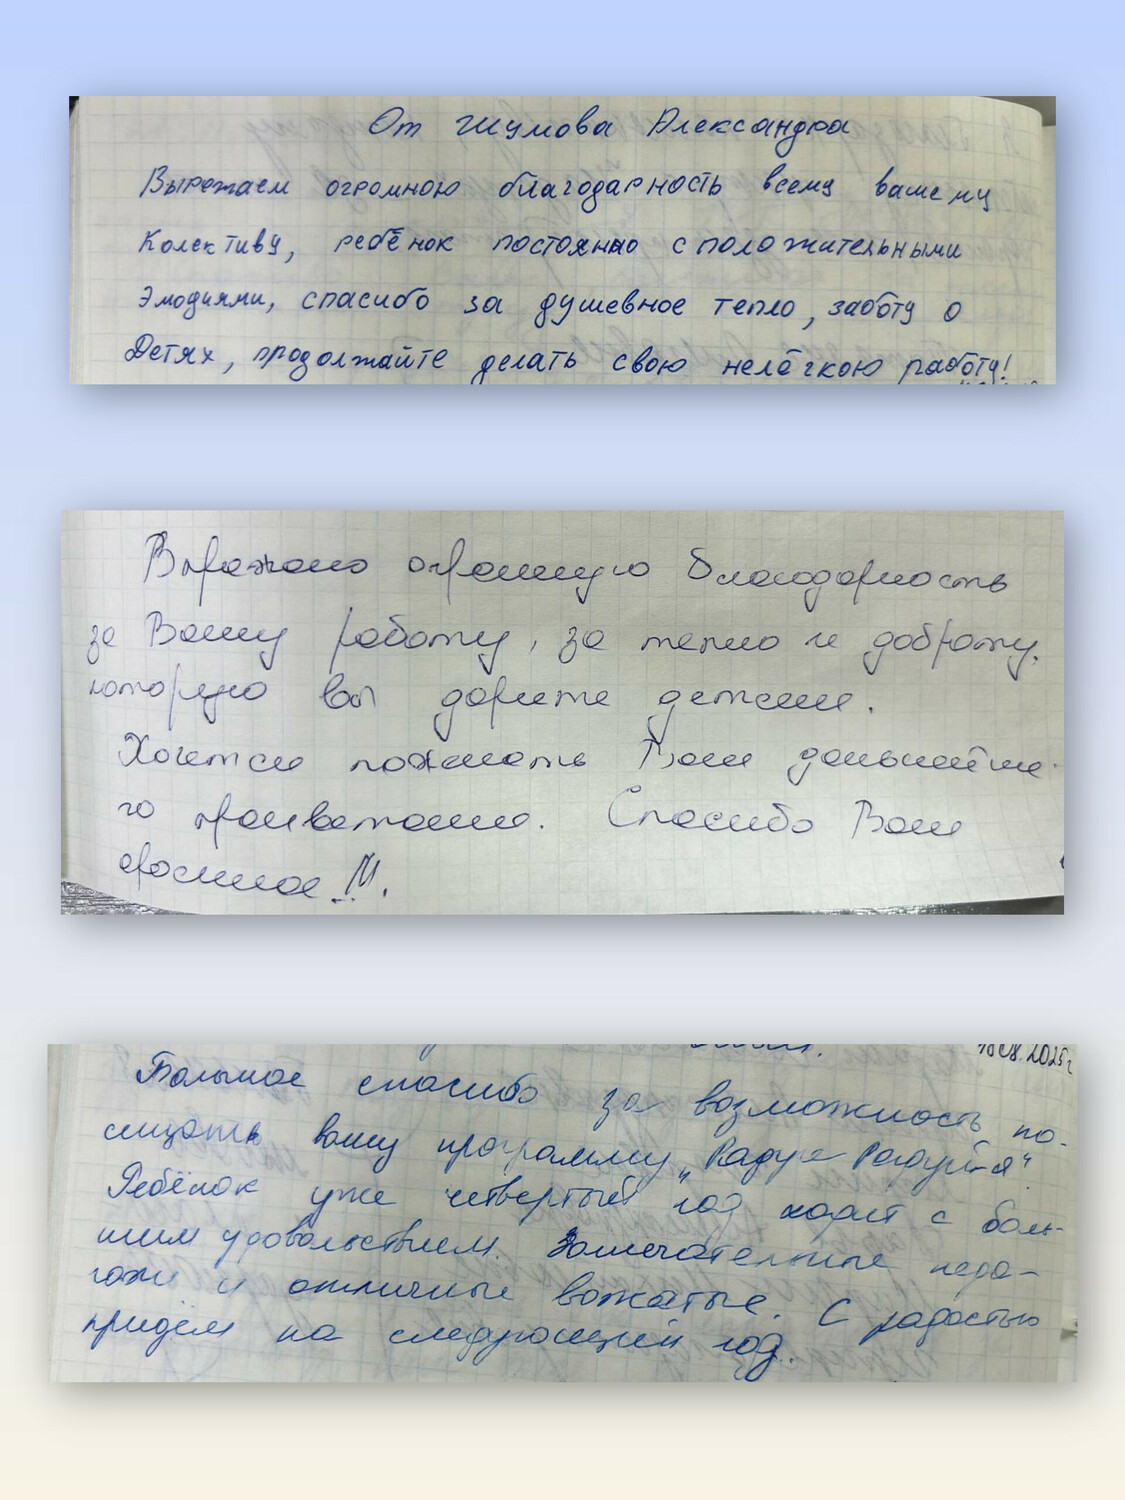 От Шумова Александра
Выражаем огромною благодарность всему вашему
Колективу, ребёнок постоянно с положительными
Эмоциями, спасибо за душевное тепло, заботу о
Детях, продолжайте делать свою нелёгкою работу!
Выражаю огромную благодарность
за Вашу работу, за тепло и доброту,
которую вы дарите детям.
Хочется пожелать Вам дальнейше-
го процветания. Спасибо Вам
огромное!!!.
18.08.2025г
Большое спасибо за возможность по-
сещать вашу программу "Радуга Радуйся"
Ребёнок уже четвертый год ходит с боль-
шим удовольствием. Замечательные педа-
гоги и отличные вожатые. С радостью
придём на следующий год.